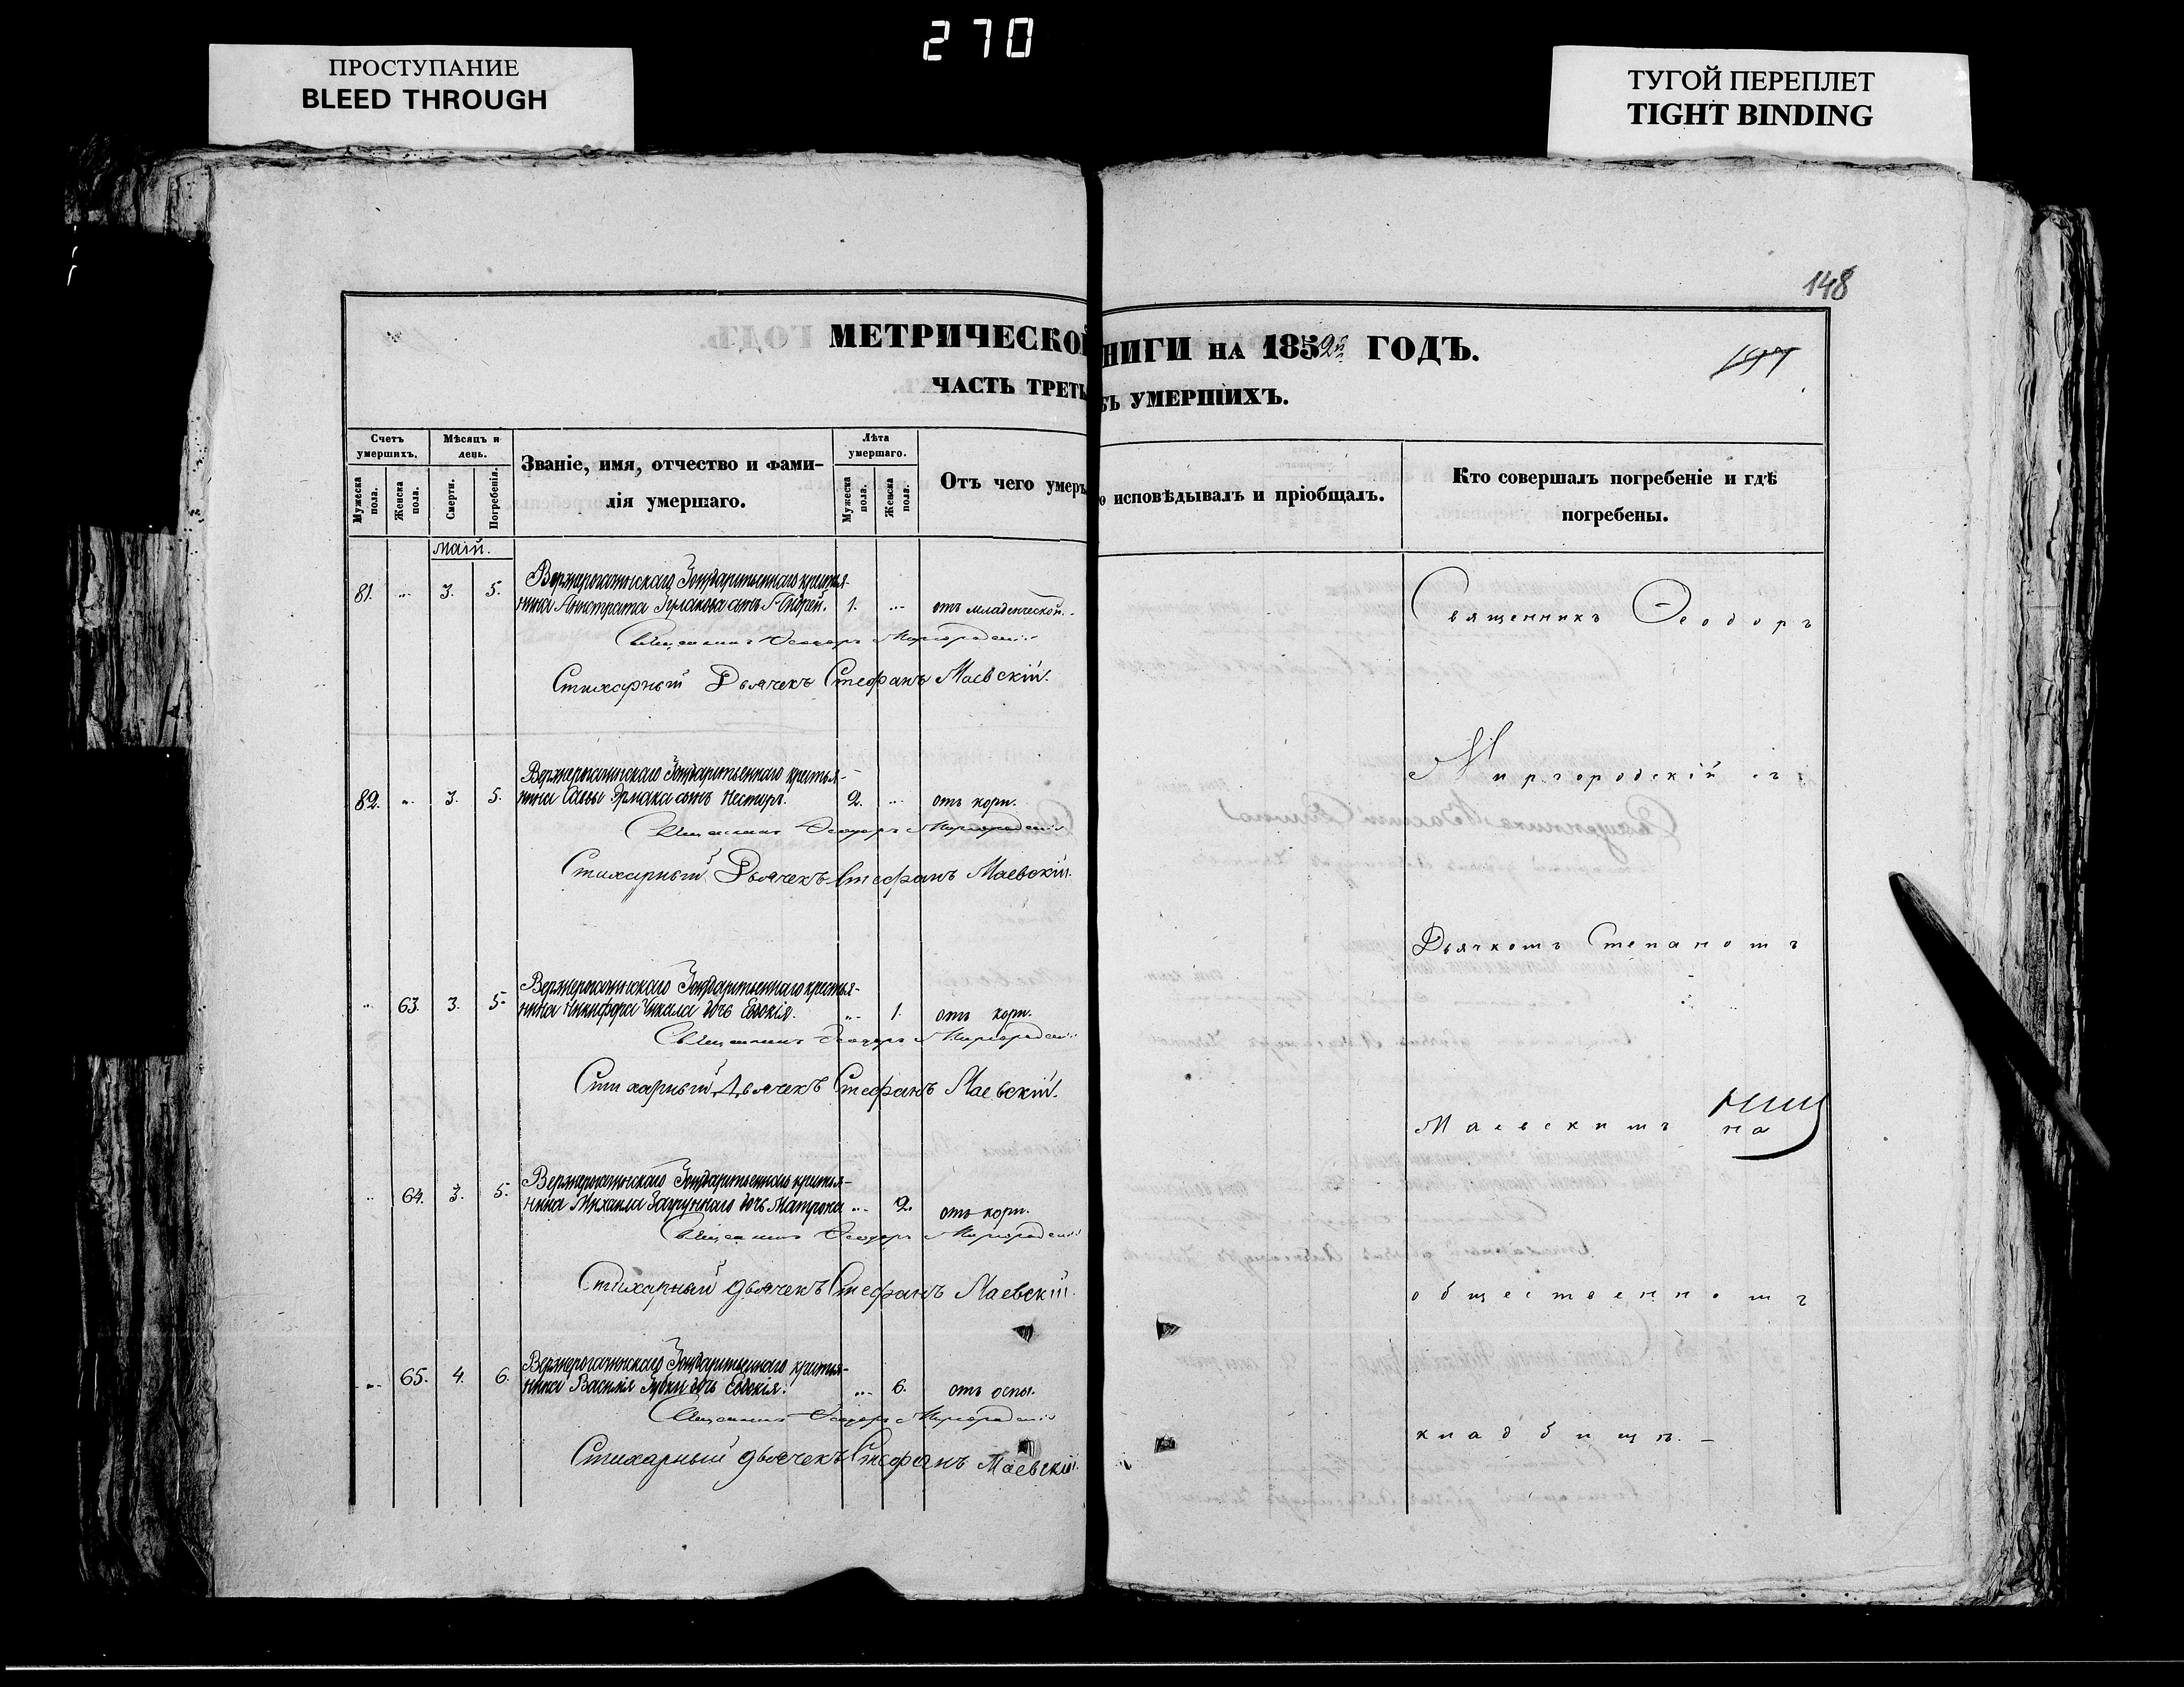 270
ПРОСТУПАНИЕ
BLEED THROUGH
ТУГОЙ ПЕРЕПЛЕТ
TIGHT BINDING
148
МЕТРИЧЕСКОЙ
НИГИ НА 1852й ГОДЪ.
ЧАСТЬ ТРЕТЬ
УМЕРШИХЪ.
Счетъ умершихъ.
Мѣсяцъ и день.
Званіе, имя, отчество и фами-
лія умершаго.
Лѣта умершаго.
Отъ чего умеръ
о исповѣдывалъ и пріобщалъ.
Кто совершалъ погребеніе и гдѣ
погребены.
Мужеска пола.
Женска пола.
Смерти.
Погребенія.
Мужеска пола.
Женска пола.
Май.
Государственнаго крестья-
81. 3. 5. нина сынъ Андрей. 1. отъ младенческой.
Священникъ Ѳеодоръ Миргородскій
Стихарный Дьячекъ Стефанъ Маевскій.
Государственнаго крестья-
82. 3. 5. нина Саввы Ярмака сынъ Несторъ. 2. отъ кори.
Священникъ Ѳеодоръ Миргородскій
Стихарный Дьячекъ Стефанъ Маевскій.
Государственнаго крестья-
63. 3. 5. нина Никифора Чикала дочь Евдокія. 1. отъ кори.
Священникъ Ѳеодоръ Миргородскій
Стихарный Дьячекъ Стефанъ Маевскій.
Государственнаго крестья-
64. 3. 5. нина Михаила дочь Матрона 2. отъ кори.
Священникъ Ѳеодоръ Миргородскій
Стихарный дьячекъ Стефанъ Маевскій.
Государственнаго крестья-
65. 4. 6. нина Василія Губки дочь Евдокія. 6. отъ оспы.
Священникъ Ѳеодоръ Миргородскій
Стихарный дьячекъ Стефанъ Маевскій.
Священникъ Ѳеодоръ
Миргородскій съ
Дьячкомъ Степаномъ
Маевскимъ на
общественномъ
кладбищѣ.